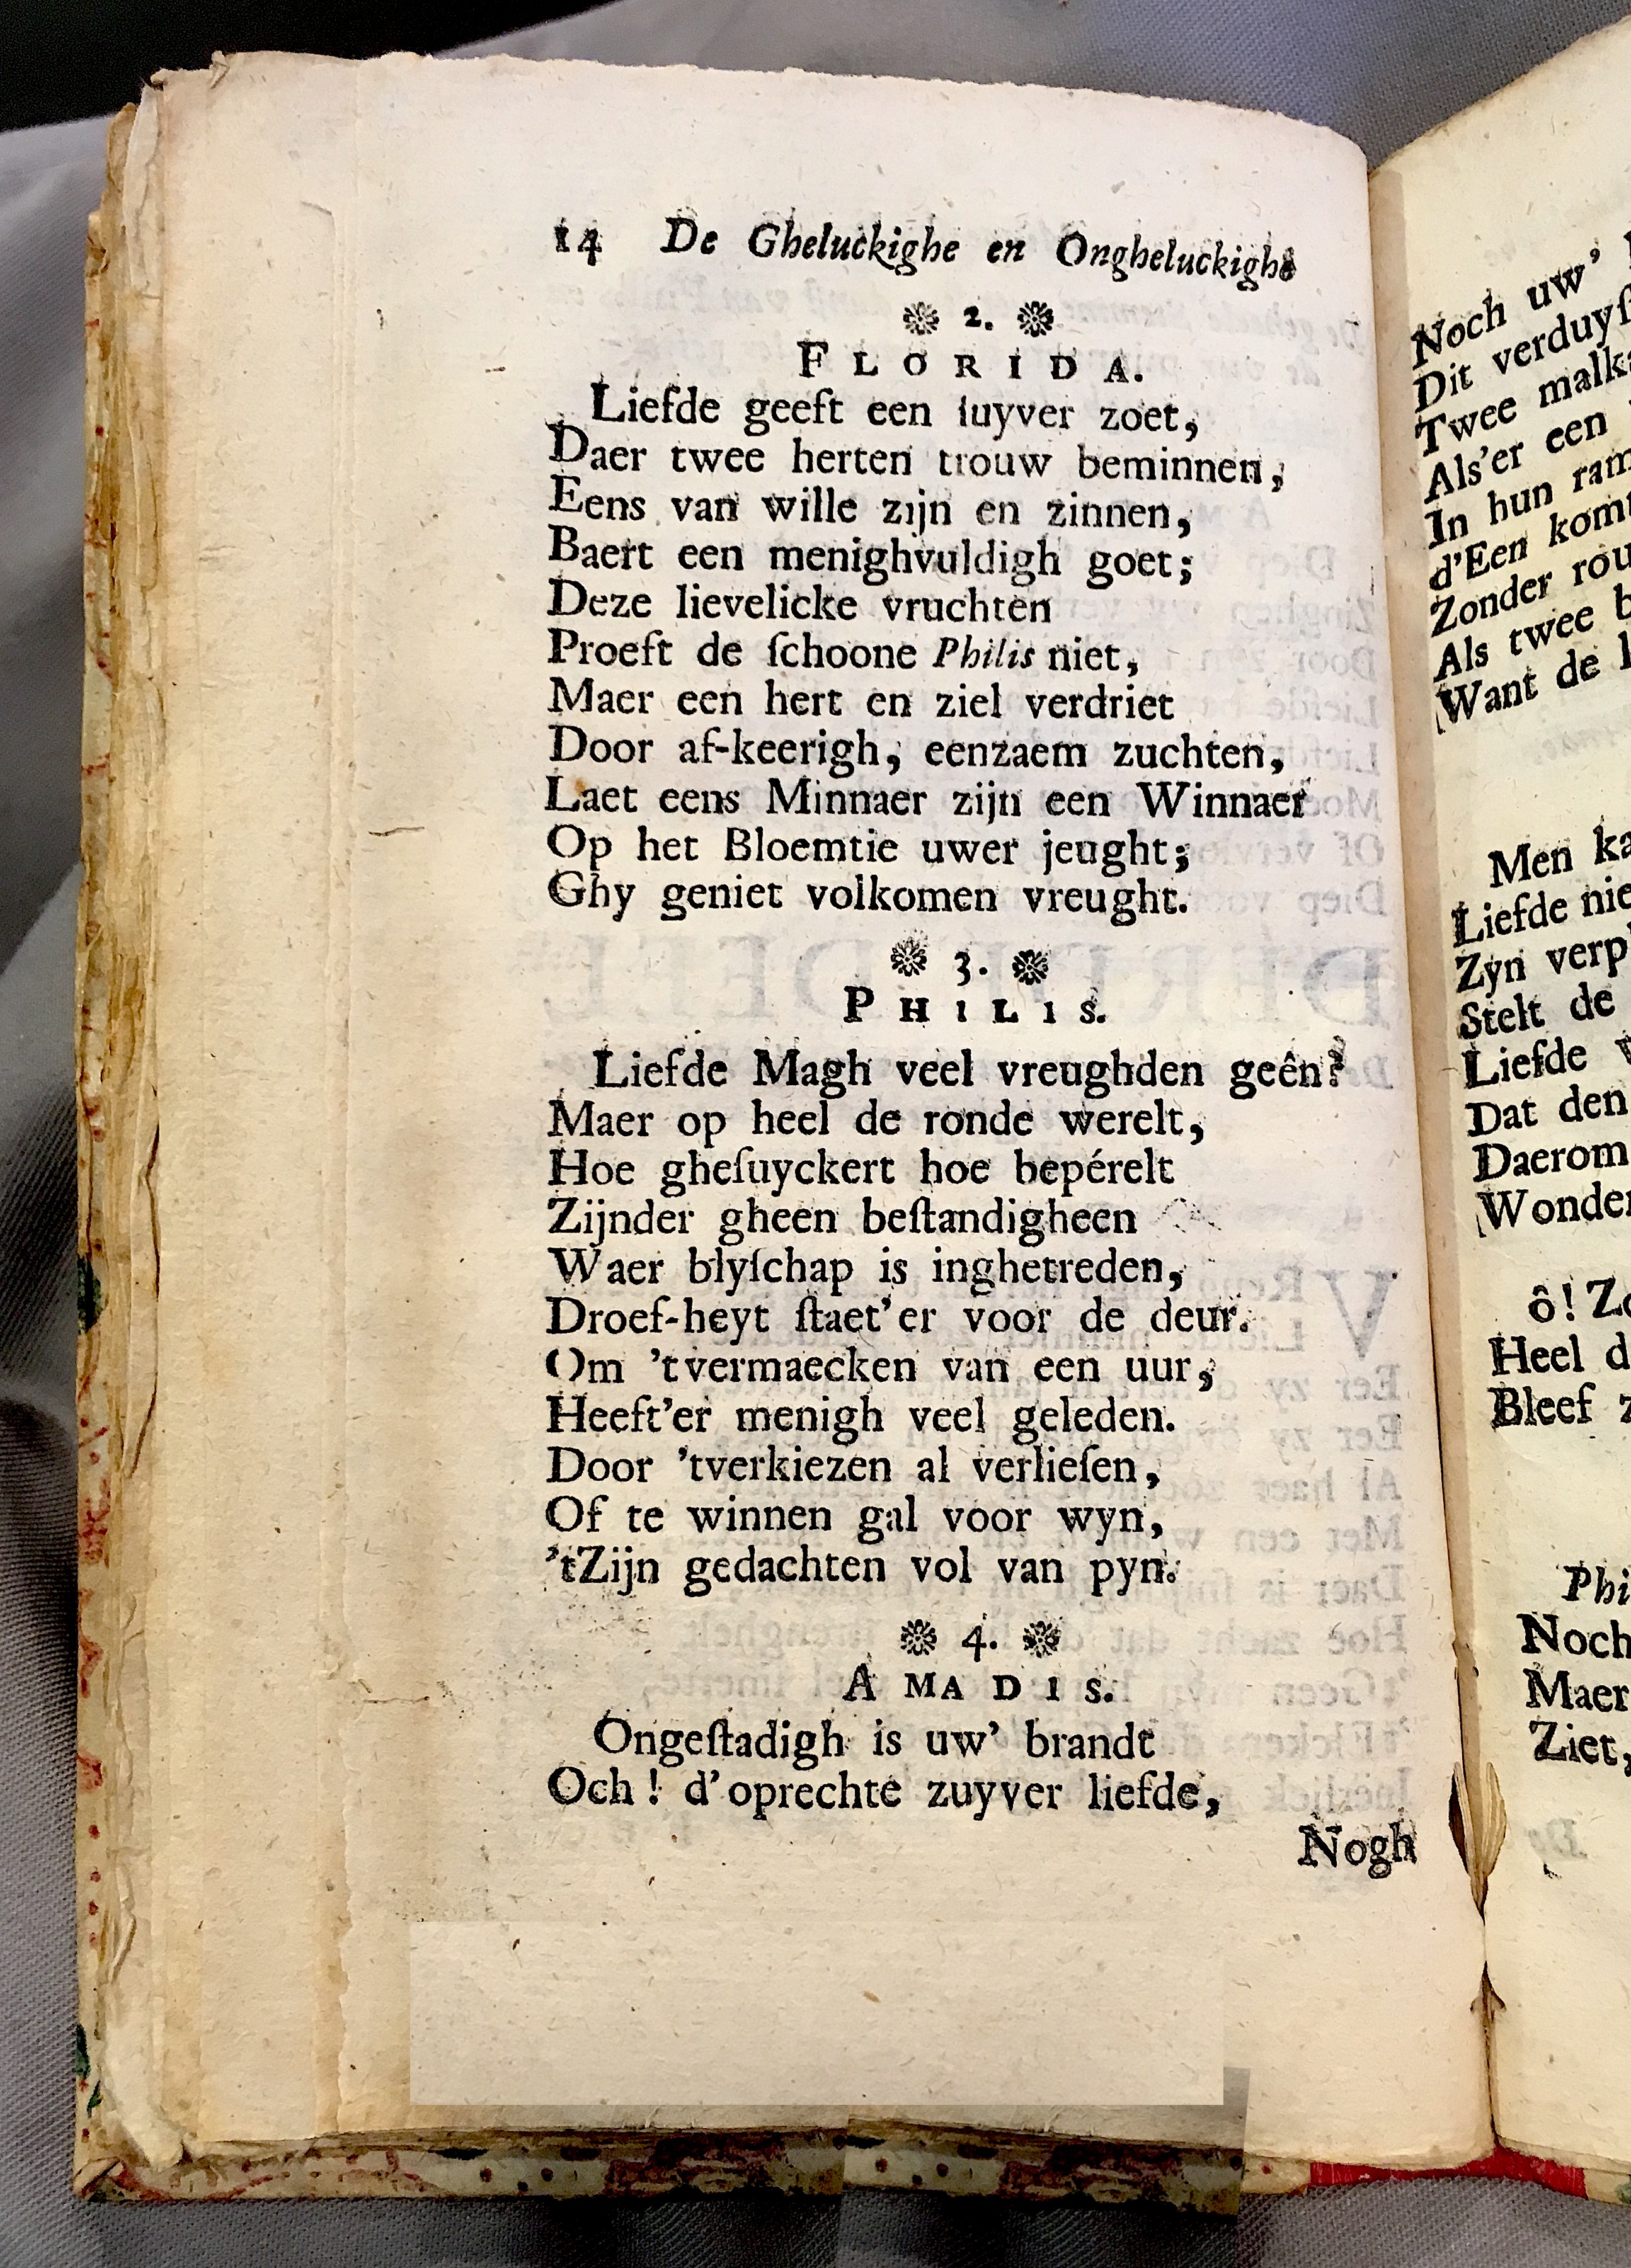 14 De Gheluckighe en Ongheluckighe
2.
FLORIDA.
Liefde geeft een ſuyver zoet,
Daer twee herten trouw beminnen,
Eens van wille zijn en zinnen,
Baert een menighvuldigh goet;
Deze lievelicke vruchten
Proeft de ſchoone Philis niet,
Maer een hert en ziel verdriet
Door af-keerigh, eenzaem zuchten,
Laet eens Minnaer zijn een Winnaer
Op het Bloemtie uwer jeught;
Ghy geniet volkomen vreught.
3.
PHILIS.
Liefde Magh veel vreughden geên?
Maer op heel de ronde werelt,
Hoe gheſuyckert hoe bepérelt
Zijnder gheen beſtandigheen
Waer blyſchap is inghetreden,
Droef-heyt ſtaet'er voor de deur.
Om 't vermaecken van een uur,
Heeft'er menigh veel geleden.
Door 'tverkiezen al verlieſen,
Of te winnen gal voor wyn,
'tZijn gedachten vol van pyn.
4.
AMADIS.
Ongeſtadigh is uw' brandt
Och! d'oprechte zuyver liefde,
Nogh
Noch uw'
Dit
Twee
Als'er een
In hun
d'Een
Zonder
Als twee
Want de
Men
Liefde
Zyn
Stelt de
Liefde
Dat den
Daerom
ô!
Heel
Bleef
Noch
Maer
Ziet,